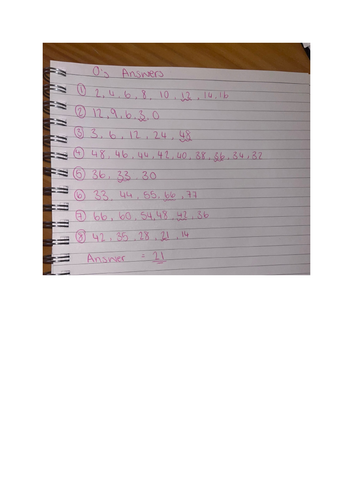 O's Answers
① 2, 4, 6, 8, 10, 12, 14, 16
② 12, 9, 6, 3, 0
③ 3, 6, 12, 24, 48
④ 48, 46, 44, 42, 40, 38, 36, 34, 32
⑤ 36, 33, 30
⑥ 33, 44, 55, 66, 77
⑦ 66, 60, 54, 48, 42, 36
⑧ 42, 35, 28, 21, 14
Answer = 21